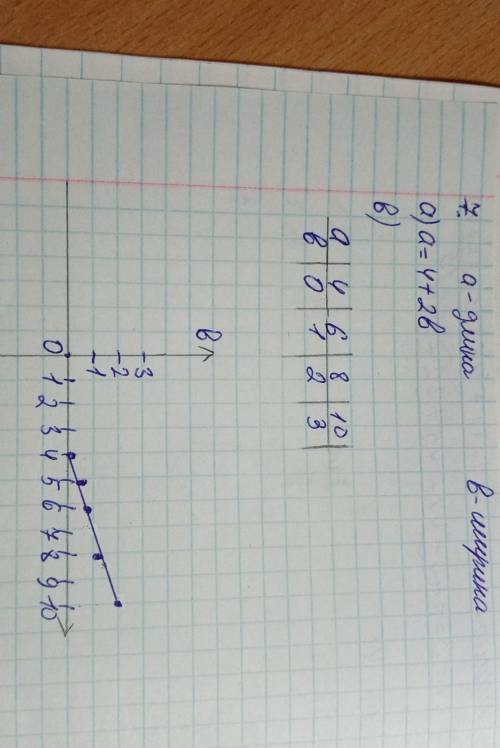 7. а - длина в - ширина
а) а = 4 + 2в
в)
а 4 6 8 10
в 0 1 2 3
в
-3
-2
-1
0 1 2 3 4 5 6 7 8 9 10